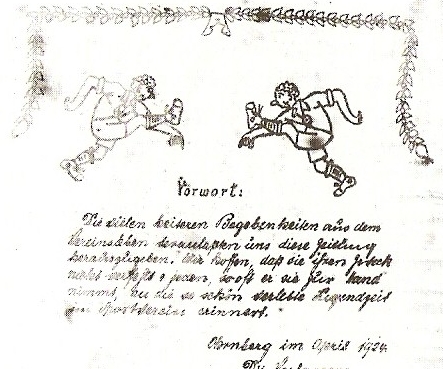 Vorwort:
Die vielen heiteren Begebenheiten aus dem
Vereinsleben veranlaßten uns diese Zeitung
herauszugeben. Wir hoffen, daß sie ihren Zweck
nicht verfehlt & jeden, so oft er sie zur Hand
nimmt, an die so schön verlebte Jugendzeit
im Sportverein erinnert.
Ornberg im April 1924
Die